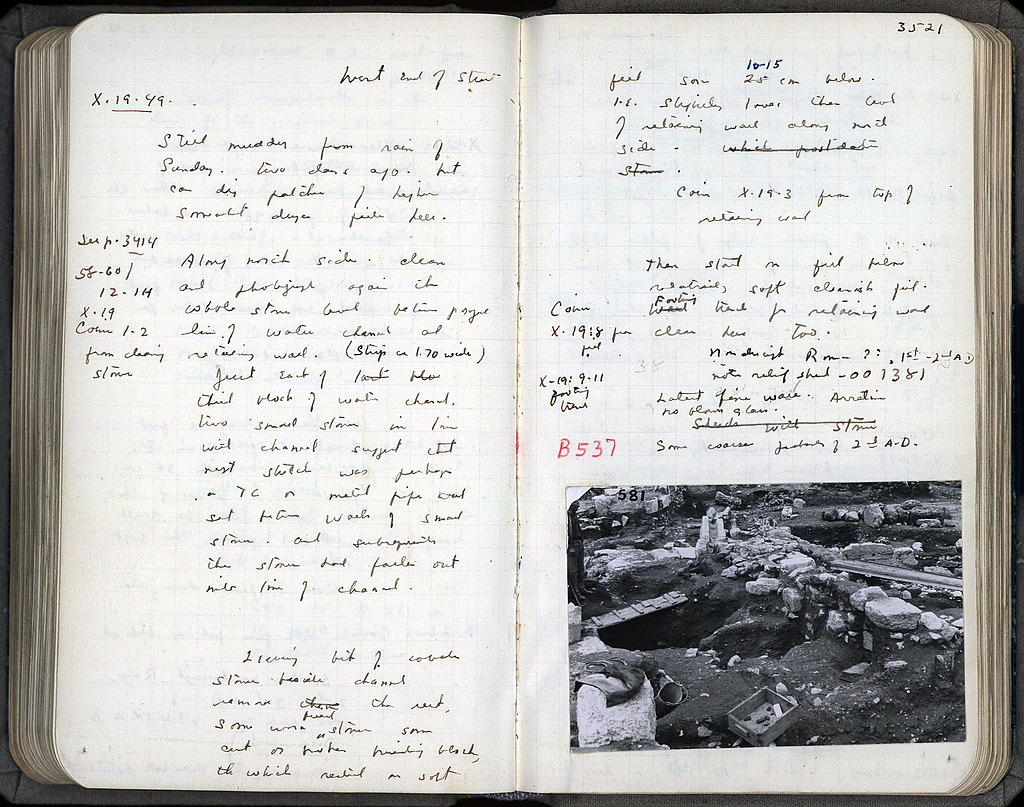 West End of Street
X.19.49.
Still muddy from rain of
Sunday. two days ago. but
can dig patches of higher
somewhat dryer fill here.
See p. 3414
58-60/
12-14
X.19
Coin 1-2
from cleaning
stones
Along north side. clean
and photograph again the
cobble stone level between
line of water channel and
retaining wall. (Strip ca 1.70 wide)
Just East of last
third block of water channel.
two small stones in line
with channel suggest that
next stretch was perhaps
a TC or metal pipe
set between walls of small
stones. and subsequently
the stones had fallen out
into line of channel.
Leaving bit of cobble
stones beside channel
remove the rest,
some were stones some
cut or broken building blocks,
which rested on soft
3521
10-15
fill some 25 cm below.
i.e. slightly lower than level
of retaining wall along north
side. which postdate
stones.
Coin X.19-3 from top of
retaining wall
Then start on fill
relatively soft fill.
Footing
trench for retaining wall
clean here too.
Coins
X-19:8 from
fill
X-19:9-11
footing
trench
38
Roman ??. 1st-2nd A.D
note relief shed - 001381
Latest fine ware. Arretine
no blown glass.
Sherds with stones
Some coarse of 2nd A.D.
B537
581